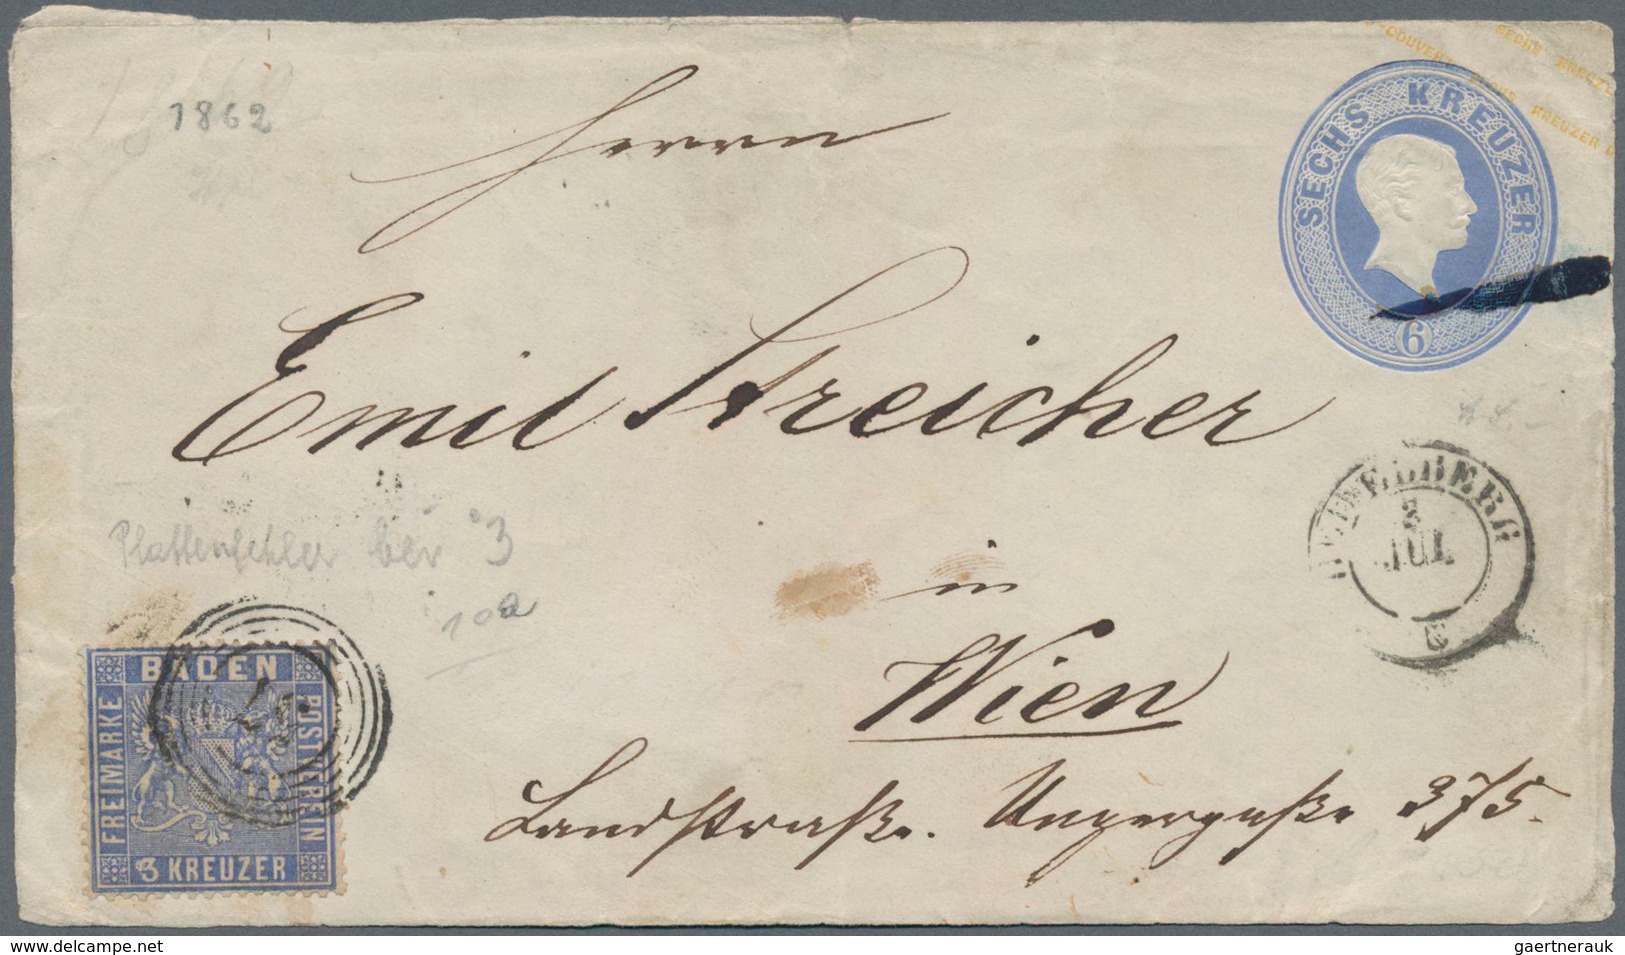 1862
SECHS KREUZER
COUVERT SECHS KREUZER
SECHS KREUZER
6
Herrn
Emil Streicher
Plattenfehler bei 3
10a
HEIDELBERG
3
JUL
in
Wien
Landstraße. Ungergaße 375.
BADEN
FREIMARKE
POSTVEREIN
3 KREUZER
delcampe.net
gaertnerauk